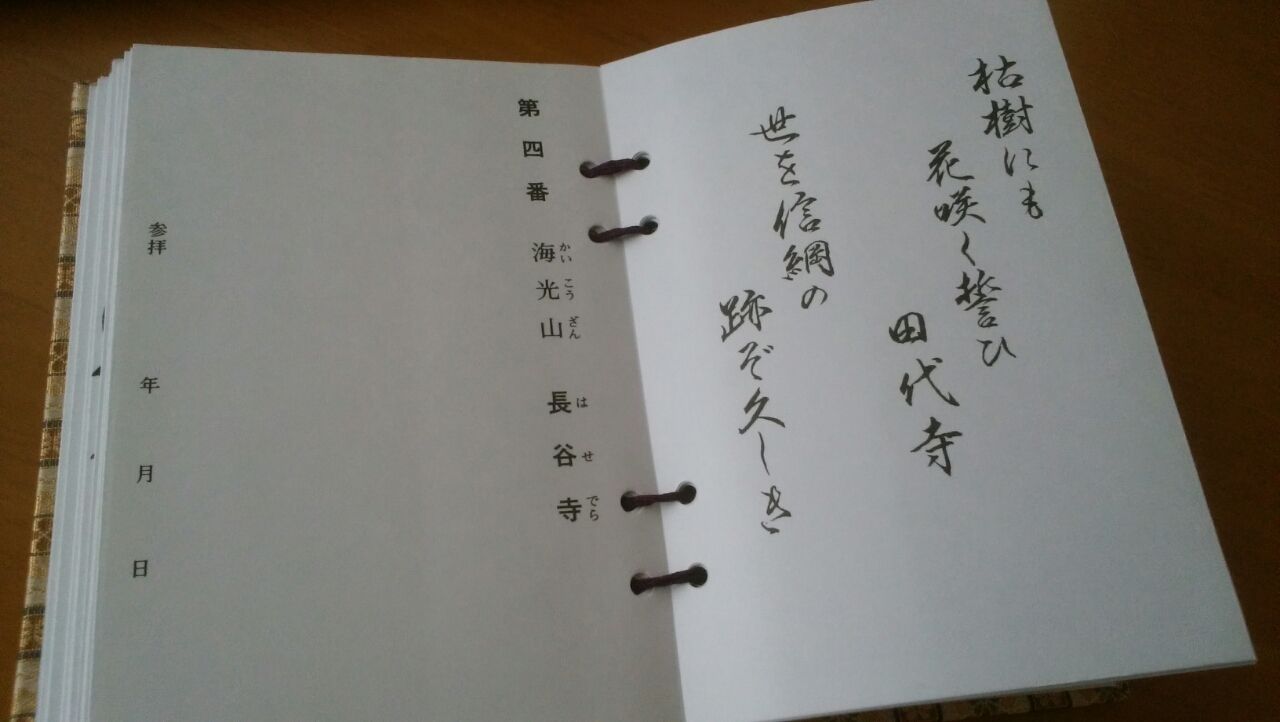 枯樹にも
花咲く誓ひ
田代寺
世を信綱の
跡ぞ久しき
第四番 海光山 長谷寺
かいこうざん はせでら
参拝 年 月 日